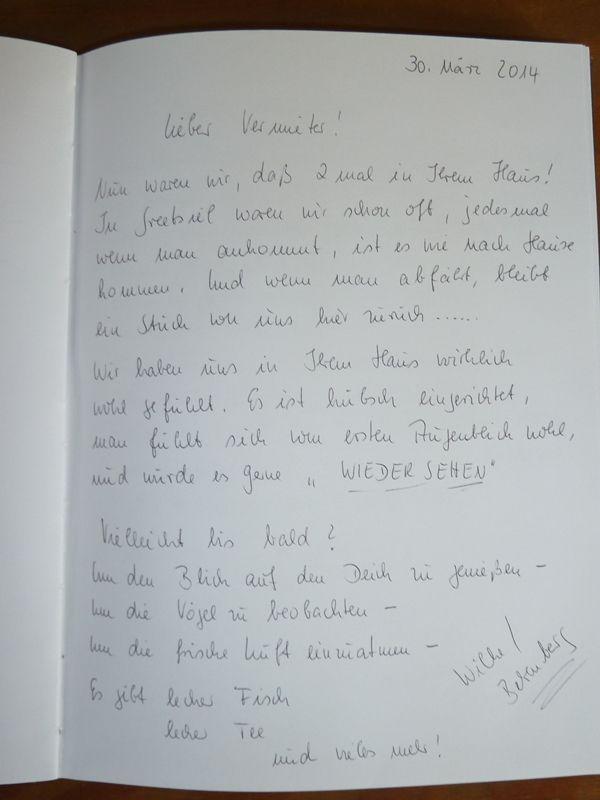 30. März 2014
Lieber Vermieter!
Nun waren wir, daß 2 mal in Ihrem Haus!
In Greetsiel waren wir schon oft, jedesmal
wenn man ankommt, ist es wie nach Hause
kommen. Und wenn man abfährt, bleibt
ein Stück von uns hier zurück ......
Wir haben uns in Ihrem Haus wirklich
wohl gefühlt. Es ist hübsch eingerichtet,
man fühlt sich vom ersten Augenblick wohl,
und würde es gerne „WIEDER SEHEN"
Vielleicht bis bald?
Um den Blick auf den Deich zu genießen –
Um die Vögel zu beobachten –
Um die frische Luft einzuatmen –
Es gibt lecker Fisch
lecker Tee
und vieles mehr!